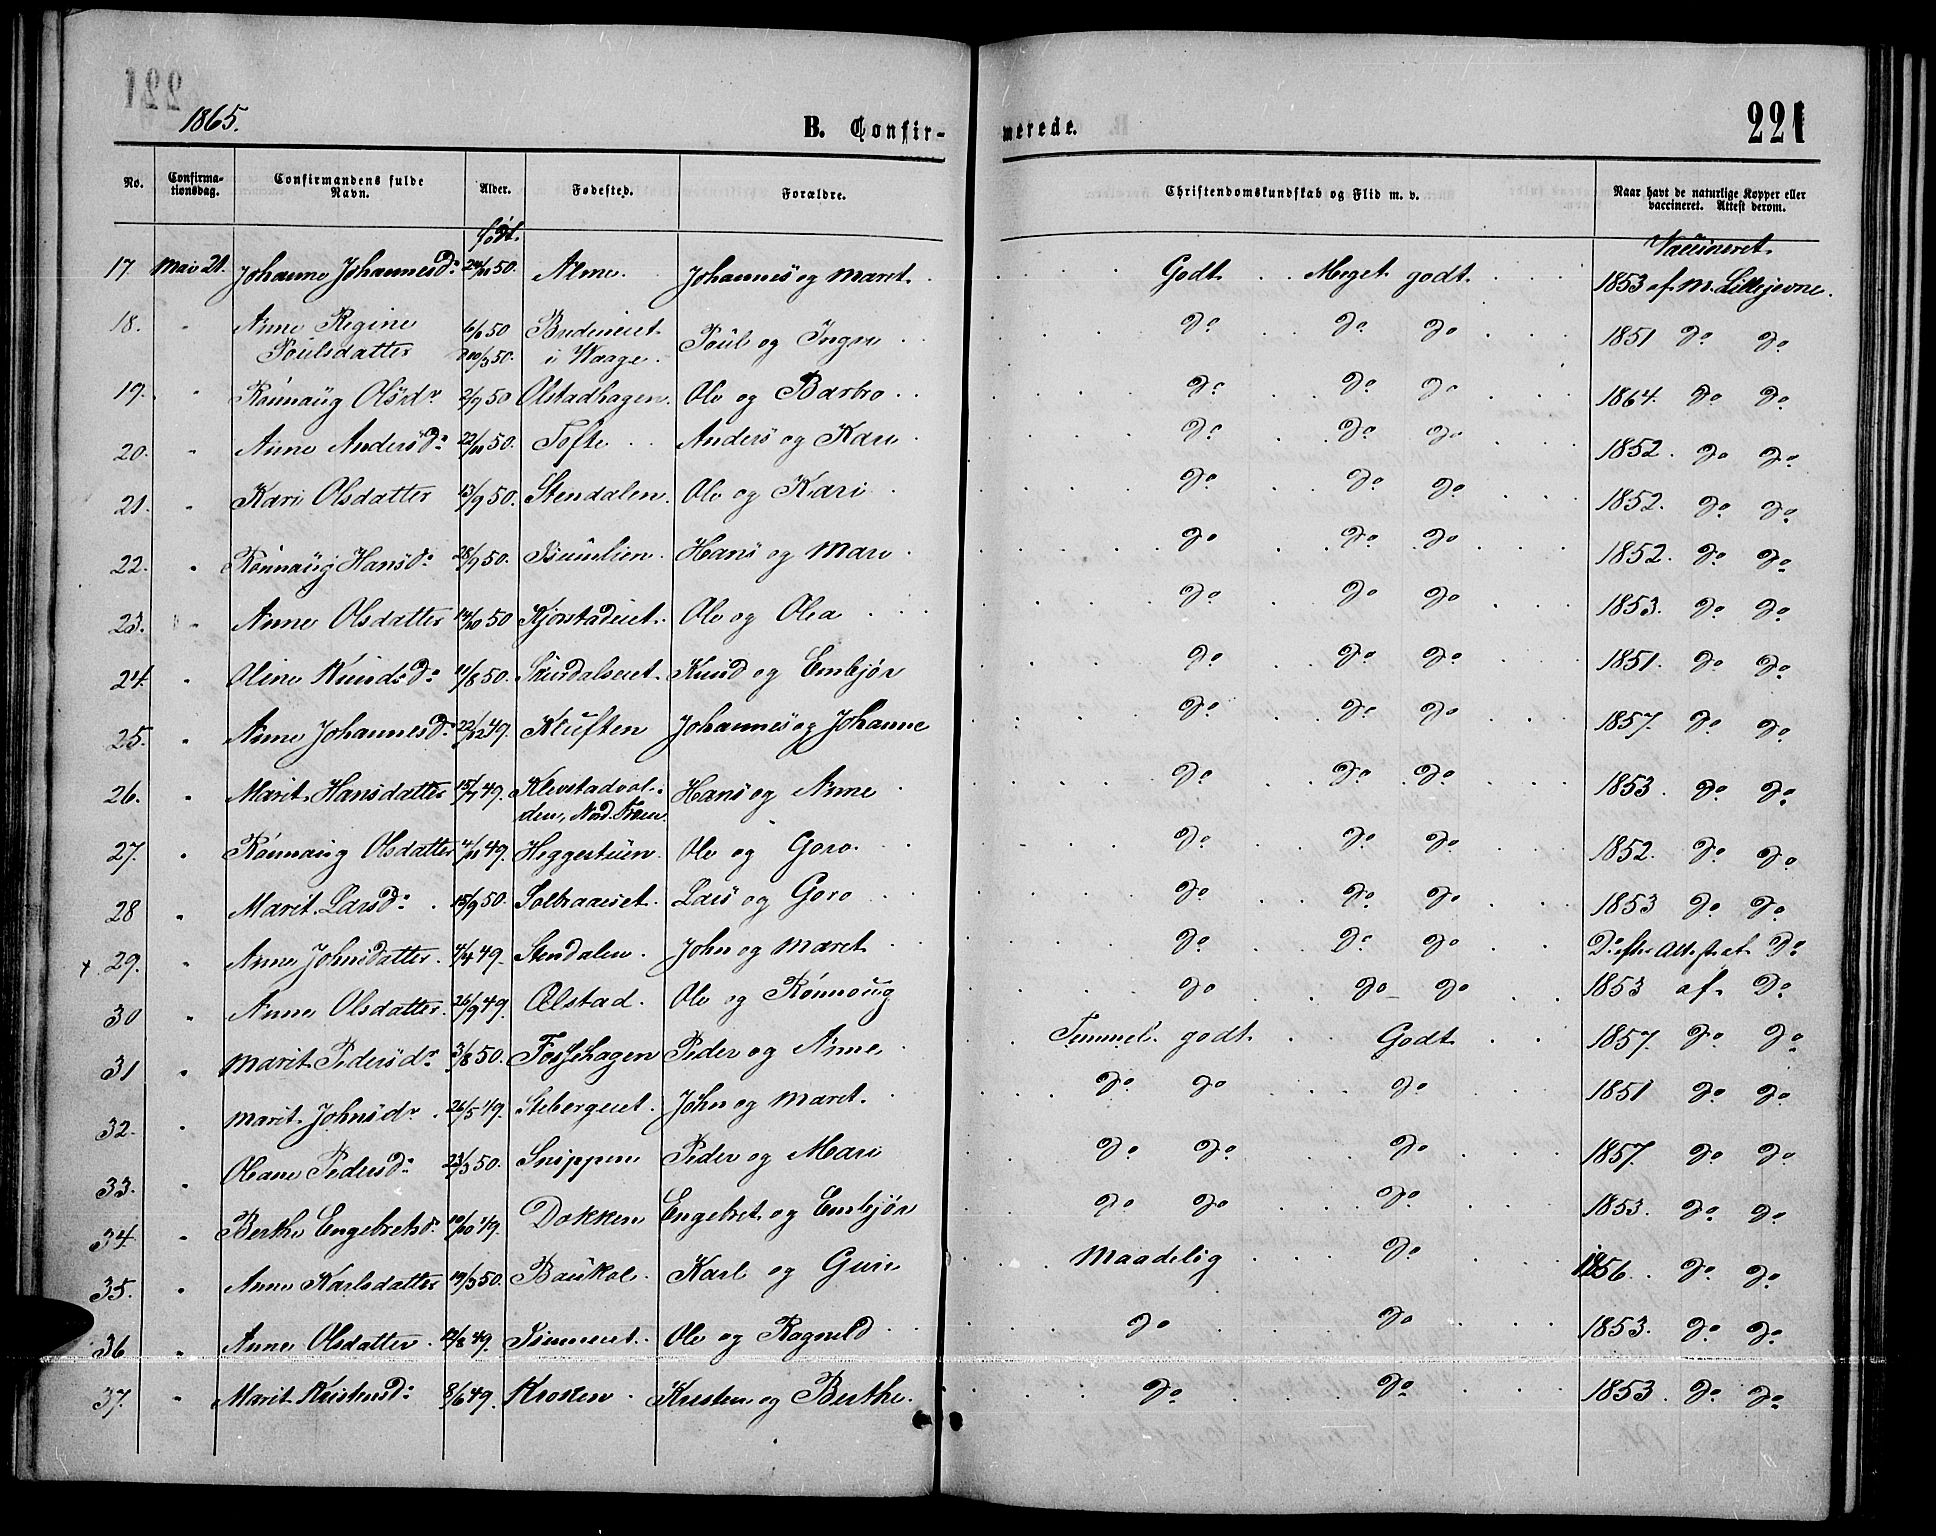 1865.
B. Confir-
merede.
221
No. Confirma-tionsdag. Confirmandens fulde Navn. Alder. Fødested. Forældre. Christendomskundskab og Flid m. v. Naar havt de naturlige Kopper eller vaccineret. Attest derom.
født. Vaccineret
17 Mai 21. Johanne Johannesd: 50. Alme. Johannes og Marit. Godt. Meget godt. 1853 af M. Lillejevne.
18. " Anne Regine 6/6 50 Bredeneiet Poul og Ingre do do do 1851 do do
Poulsdatter 20/3 50. i Waage.
19. " Rønnaug Olsdr 2/9 50 Olstadhagen. Ole og Barbro do do do 1864. do do
20. " Anne Andersd: 22/11 50. Tofte Anders og Kari do do do 1852. do do
21. " Kari Olsdatter 13/9 50. Stendalen. Ole og Kari do do do 1852. do do
22. " Rønnaug Hansd: 28/9 50. Isumlien. Hans og Mari do do do 1852. do do
23. " Anne Olsdatter 14/10 50 Kjørstadeiet. Ole og Olea do do do 1853. do do
24. " Oline Knudsd: 11/8 50. Skurdalseiet. Knud og Embjør do do do 1851. do do
25. " Anne Johannesd: 22/12 49. Kluften Johannes og Johanne do do do 1857. do do
26. " Marit Hansdatter 15/7 49. Klevstadvol- Hans og Anne do do do 1853. do do
den, Nord. Fron
27. " Rønnaug Olsdatter 4/11 49. Heggestuen. Ole og Goro. do do do 1852. do do
28 " Marit Larsd: 15/9 50. Solbraaeiet. Lars og Goro do do do 1853 do do
+ 29. " Anne Johnsdatter. 4/4 49. Stendalen. John og Maret do do do Do efter Attest af Do
30 " Anne Olsdatter. 26/9 49. Ølstad. Ole og Rønnoug do do do 1853 af. Do
31 " Marit Pedersdr 3/8 50. Fossehagen Peder og Anne. Temmel. godt Godt 1857. do do
32. " Marit Johnsdr. 26/5 49. Stebergeiet. John og Maret. do do do 1851 do do
33. " Oleane Pedersd: 23/3 50. Snippen Peder og Mari do do do 1857. do do
34. " Berthe Engebretsdr 10/10 49. Dokken Engebret og Embjør do do do 1853. do do
35. " Anne Karlsdatter 19/3 50. Baukol. Karl og Guri Maadelig do 1856. do do
36 " Anne Olsdatter. 12/8 49. Isumeiet. Ole og Ragnild do do 1853. do do
37. " Marit Kristensd: 8/6 49. Kroken Kristen og Berthe. do do 1853. do do